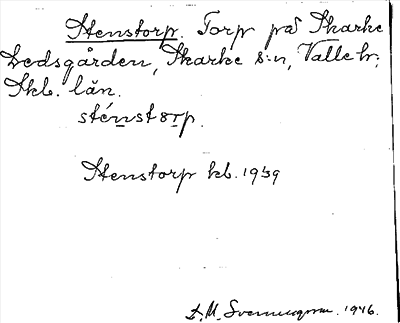 Stenstorp. Torp på Skarke
Ledsgården, Skarke s:n, Valle hr;
Skb. län.
sténstårp.
Stenstorp kb. 1939
1946.